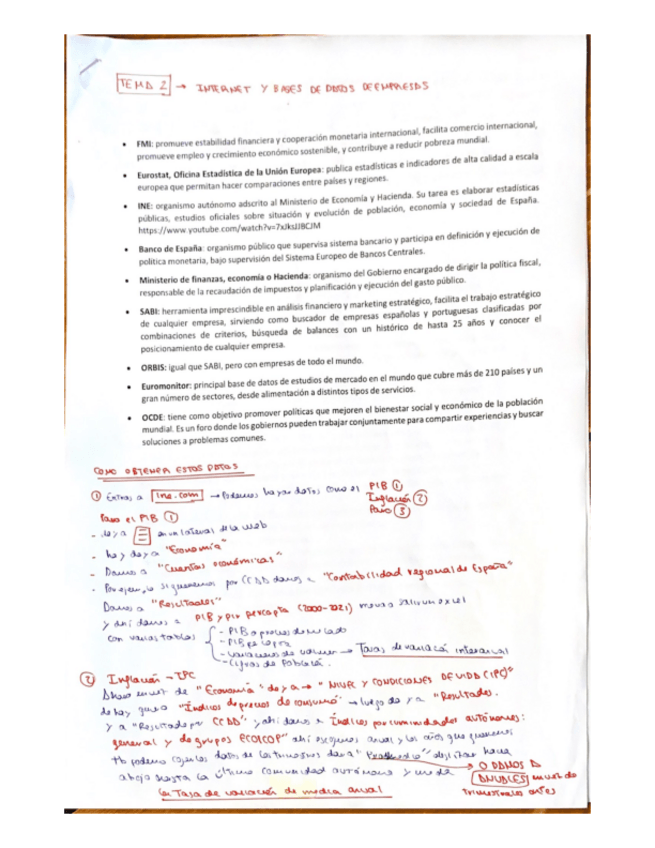 TEMA 2 → INTERNET Y BASES DE DATOS DE EMPRESAS
• FMI: promueve estabilidad financiera y cooperación monetaria internacional, facilita comercio internacional,
promueve empleo y crecimiento económico sostenible, y contribuye a reducir pobreza mundial.
• Eurostat, Oficina Estadística de la Unión Europea: publica estadísticas e indicadores de alta calidad a escala
europea que permitan hacer comparaciones entre países y regiones.
• INE: organismo autónomo adscrito al Ministerio de Economía y Hacienda. Su tarea es elaborar estadísticas
públicas, estudios oficiales sobre situación y evolución de población, economía y sociedad de España.
• Banco de España: organismo público que supervisa sistema bancario y participa en definición y ejecución de
política monetaria, bajo supervisión del Sistema Europeo de Bancos Centrales.
• Ministerio de finanzas, economía o Hacienda: organismo del Gobierno encargado de dirigir la política fiscal,
responsable de la recaudación de impuestos y planificación y ejecución del gasto público.
• SABI: herramienta imprescindible en análisis financiero y marketing estratégico, facilita el trabajo estratégico
de cualquier empresa, sirviendo como buscador de empresas españolas y portuguesas clasificadas por
combinaciones de criterios, búsqueda de balances con un histórico de hasta 25 años y conocer el
posicionamiento de cualquier empresa.
• ORBIS: igual que SABI, pero con empresas de todo el mundo.
• Euromonitor: principal base de datos de estudios de mercado en el mundo que cubre más de 210 países y un
gran número de sectores, desde alimentación a distintos tipos de servicios.
• OCDE: tiene como objetivo promover políticas que mejoren el bienestar social y económico de la población
mundial. Es un foro donde los gobiernos pueden trabajar conjuntamente para compartir experiencias y buscar
soluciones a problemas comunes.
COMO OBTENER ESTOS DATOS
① Entras a ine.com → Podemos hayar datos como el PIB ①
Inflación ②
Paro ③
Para el PIB ①
- en un lateral de la web
- "Economía"
- Damos a "Cuentas económicas"
- Por ejemplo si queremos por CCAA damos a "Contabilidad regional de España"
Damos a "Resultados"
y ahí damos a PIB y PIB per capita (2000-2021)
con varias tablas
- PIB a precios de mercado
- PIB per capita
- variaciones de volumen → Tasas de variación interanual
- Cifras de Población.
② Inflación - IPC
"Economía" "NIVEL Y CONDICIONES DE VIDA (IPC)"
"Índices de precios de consumo" → luego "Resultados.
y a "Resultados por CCAA" y ahí damos a Índices por comunidades autónomas:
general y de grupos ECOICOP" ahí escogemos anual y los años que queramos
abajo hasta la última comunidad autónoma
O DAMOS A
ANUALES
trimestrales antes
La Tasa de variación de media anual